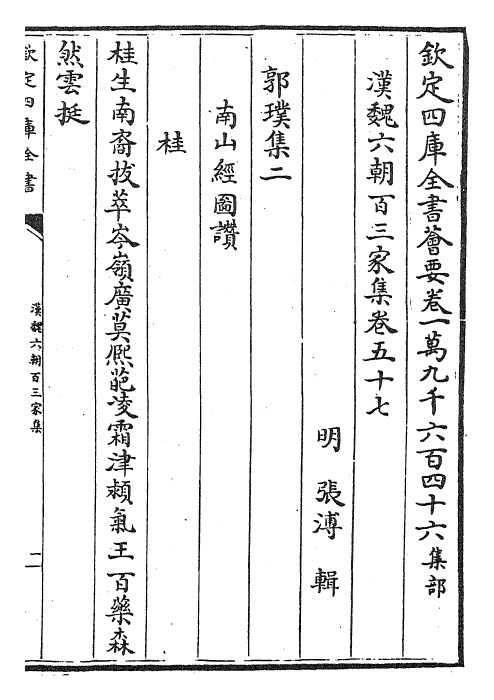 欽定四庫全書薈要卷一萬九千六百四十六集部
漢魏六朝百三家集卷五十七
明 張溥 輯
郭璞集二
南山經圖讚
桂
桂生南裔拔萃岑嶺廣莫熈葩凌霜津頰氣王百藥森
然雲挺
欽定四庫全書
漢魏六朝百三家集
二